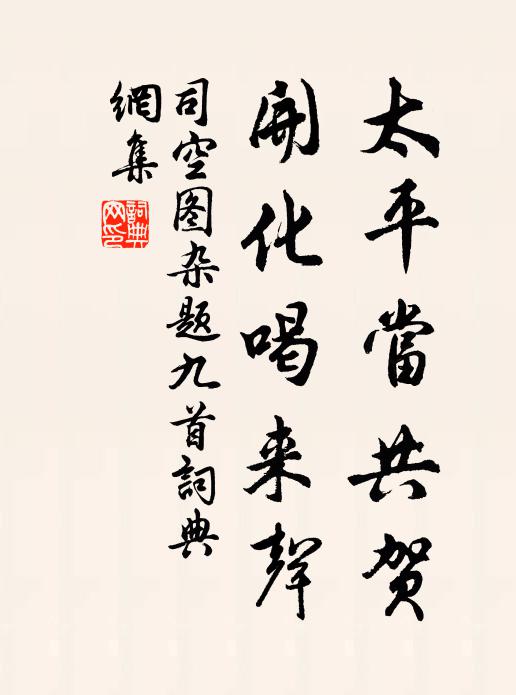 太平當共賀
開化喝来聲
司空图杂题九首詞典
網集
詞典網印